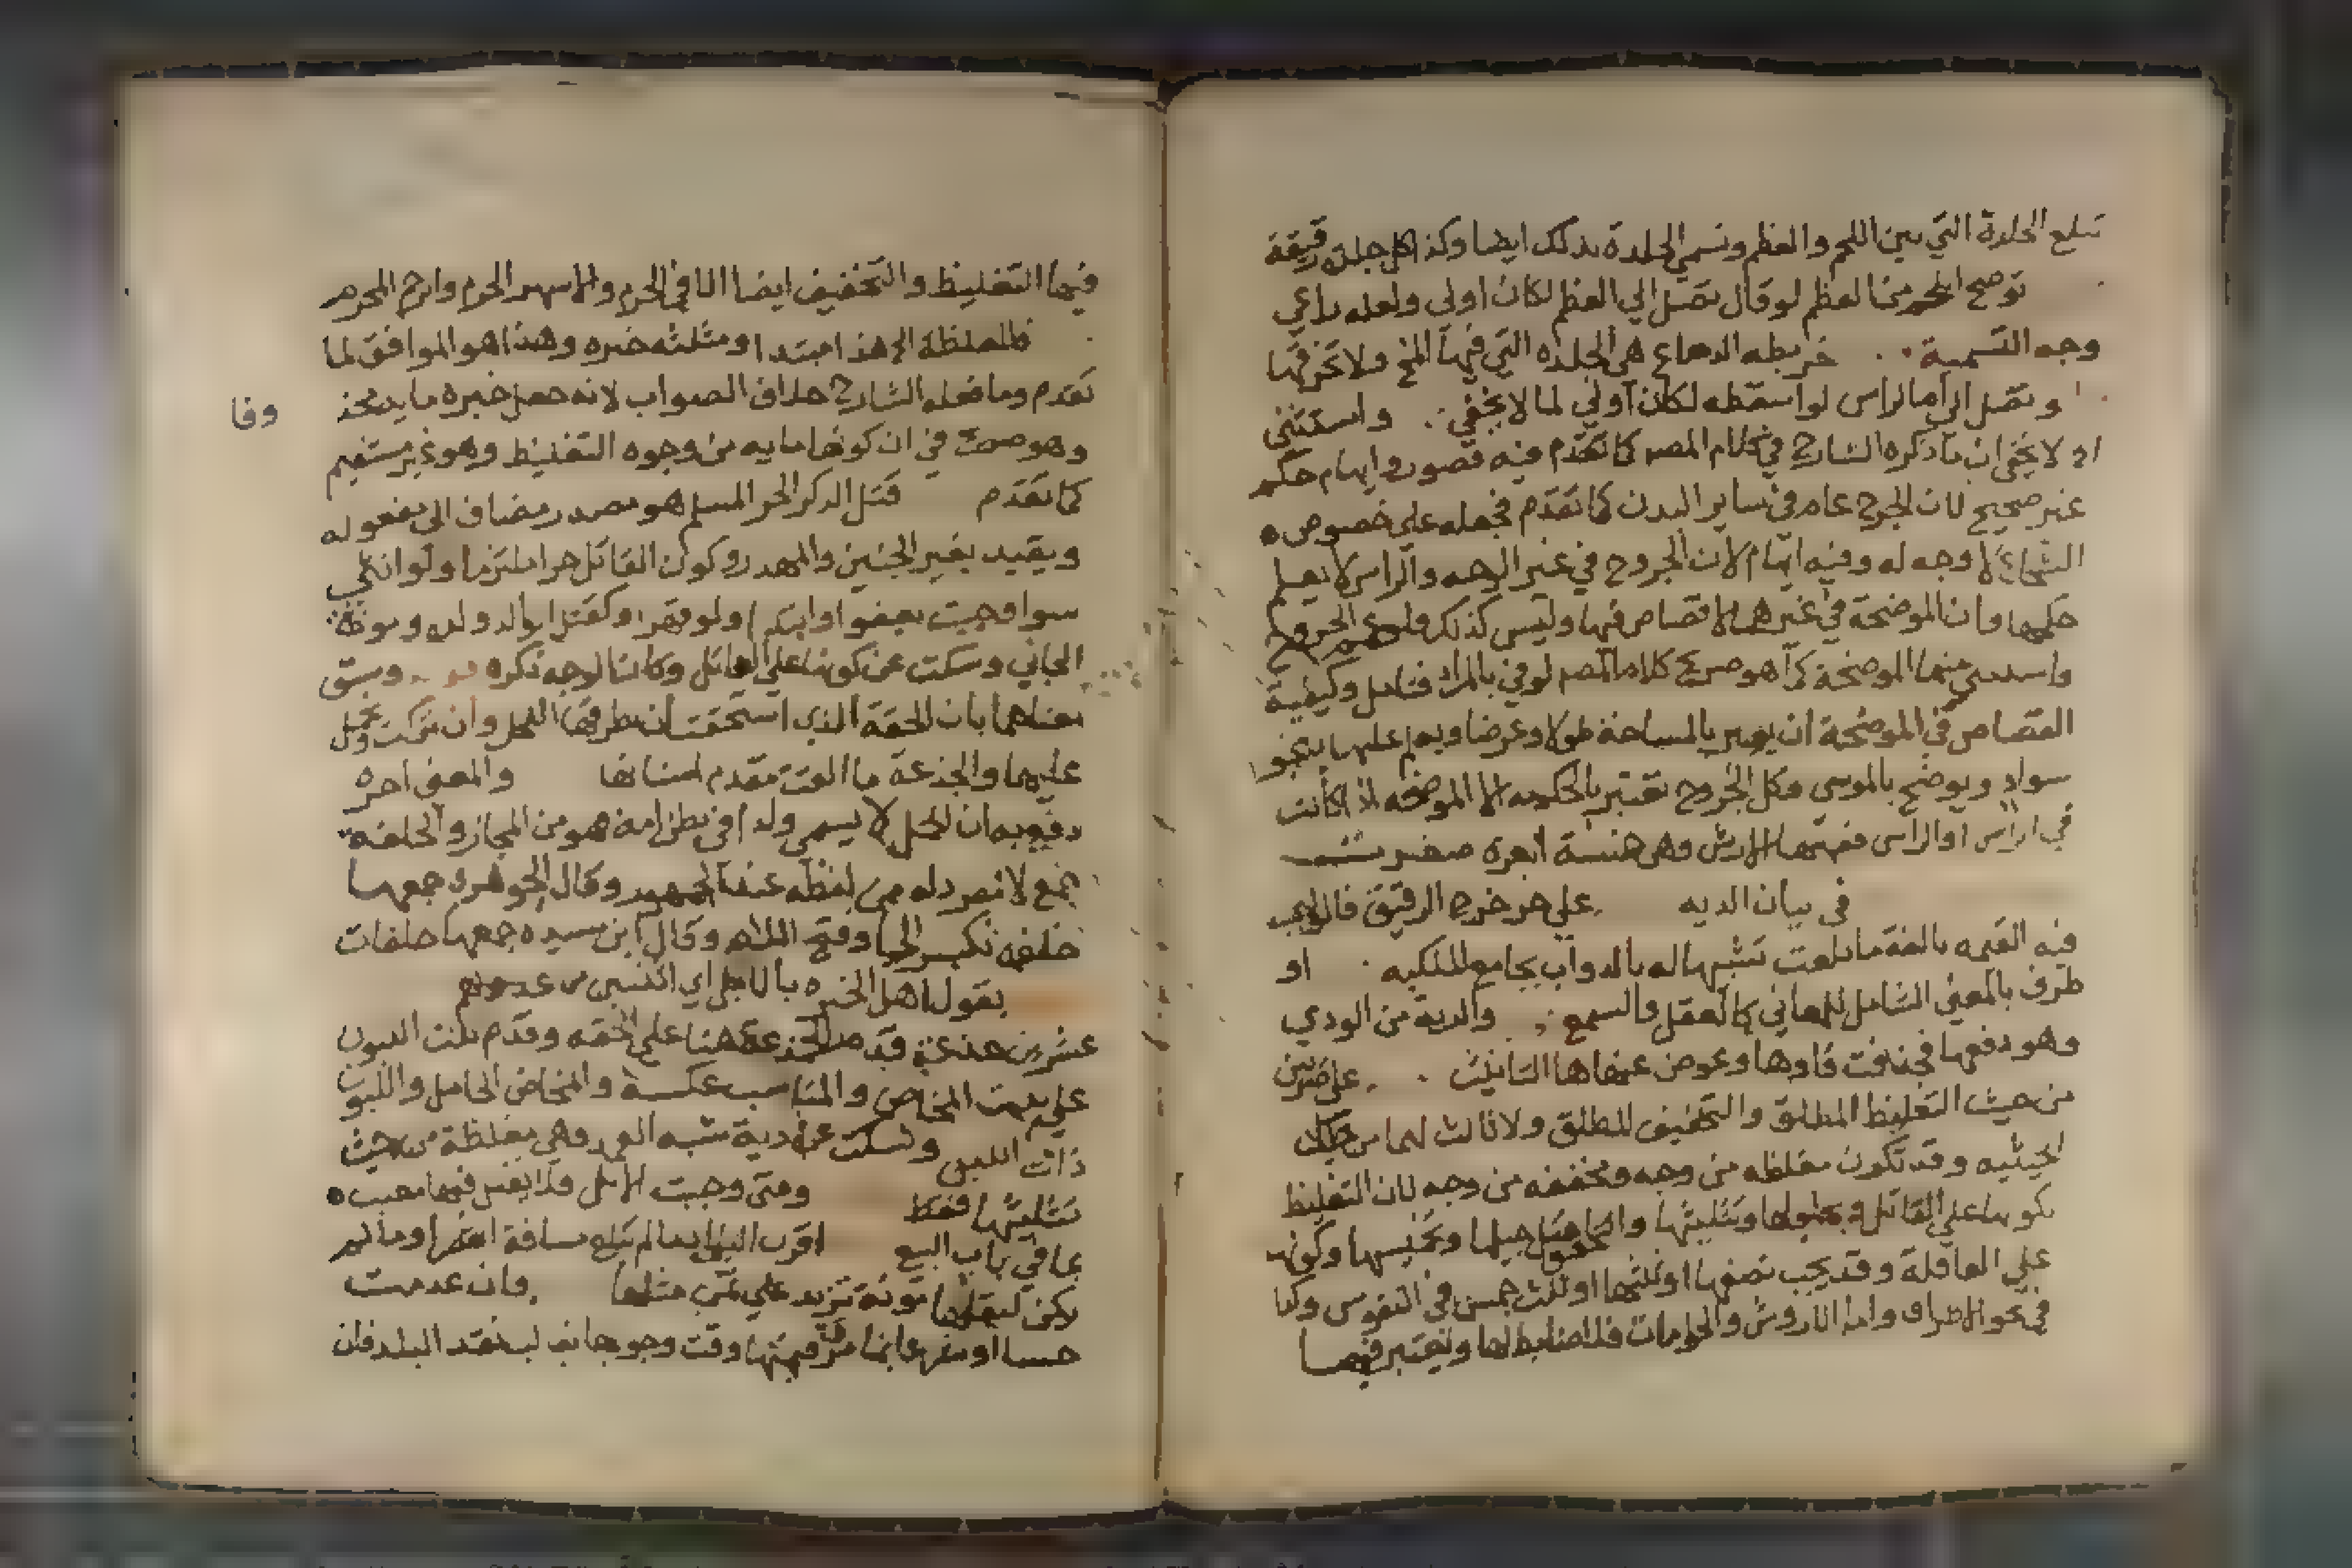 تبلغ الجلدة التي بين اللحم والعظم وتسمى الجلدة بذلك ايضا وكذا كل جلدة رقيقة
توضح العظم لو قال تصل الي العظم لكان اولى ولعله راعي
وجه التسمية خريطه الدماغ هي الجلده التي فيها المخ ولا تخرقها
وتصل ام الراس لو اسقطه لكان اولي لما لا يخفي واستثنى
لا يخفي ان ما ذكره الشارح في كلام المص كما تقدم فيه قصور وايهام حكم
غير صحيح لان الجرح عام في ساير البدن كما تقدم فجعله على خصوص
الشجاج لا وجه له وفيه ايهام لان الجروح في غير الوجه والراس لا يعلم
حكمها وان الموضحة في غيرهما لا قصاص فيها وليس كذلك ولو الجروح
منها الموضحة كما هو صريح كلام المص لوفي بالمراد فتامل وكيفية
القصاص في الموضحة ان بالمساحة طولا وعرضا ويعلم عليها بنحو
سواد ويوضح بالموسي وكل الجروح تعتبر بالحكومه الا الموضحه اذا كانت
في الراس ففيها الارش وهي خمسة ابعره
في بيان الديه علي حر خرج الرقيق فالواجب
فيه القيمه بالغة ما بلغت تشبيها له بالدواب بجامع الملكيه او
طرف بالمعنى الشامل للمعاني كالعقل والسمع والدية من الودي
وهو دفعها فحذفت فاوها وعوض عنها ها التانيث علي ضربين
من حيث التغليظ المطلق والتخفيف المطلق ولا ثالث لهما من تلك
الحيثيه وقد تكون مغلظه من وجه ومخففه من وجه لان التغليظ
بكونها علي القاتل وحلولها وتثليثها والتخفيف وتخميسها وكونها
علي العاقلة وقد يجب نصفها او ثلثها او ثلث خمس في النفوس وكذا
في نحو الاطراف واما الاروش والحكومات فلا ضابط لها وتعتبر فيهما
فيها التغليظ والتخفيف ايضا الا في الحرم والاشهر الحرم وارح المحرم
فالمغلظة الي هذا مبتدا ومثلثه خبره وهذا هو الموافق لما
تقدم وما فعله الشارح خلاف الصواب لانه جعل خبره
وهو صريح في ان كونها مايه من وجوه التغليظ وهو غير مستقيم
وفا
كما تقدم قتل الذكر الحر المسلم هو مصدر مضاف الى مفعوله
ويقيد بغير الجنين والمهدر وكون القاتل حرا ملتزما ولو انثي
سوا وجبت بعفو او ابتدا ولو قهرا وكقتل الوالد ولده وموت
الجاني وسكت عن كونها علي القاتل وكان الوجه ذكره وسبق
معناهما بان الحقة الذي استحقت ان يطرقها الفحل وان تركت ويحمل
عليها والجذعة ما القت مقدم اسنانها والمعنى
ان الحمل لا يسمى ولدا في بطن امه هو من المجاز والخلفه
جمع لا مفرد له من لفظه عند الجمهور وقال الجوهري جمعها
خلفه بكسر الخا وفتح اللام وقال ابن سيده جمعها خلفات
بقول اهل الخبره بالابل اي اثنين من عدولهم
عشرين جذعة قدم الجذعة هنا علي الحقه وقدم بنت اللبون
علي بنت المخاض والمناسب عكسه والمخاض الحامل واللبون
ذات اللبن وسكت عن دية شبه العمد وهي مغلظة من حيث
تثليثها فقط ومتى وجبت الابل فلا يقبل فيها معيب
بما في باب البيع اقرب البلاد ما لم تبلغ مسافة القصر او ما لم
يكن لنقلها مونة تزيد علي ثمن مثلها وان عدمت
حسا او شرعا قيمتها وقت وجوبها بغالب نقد البلد فان